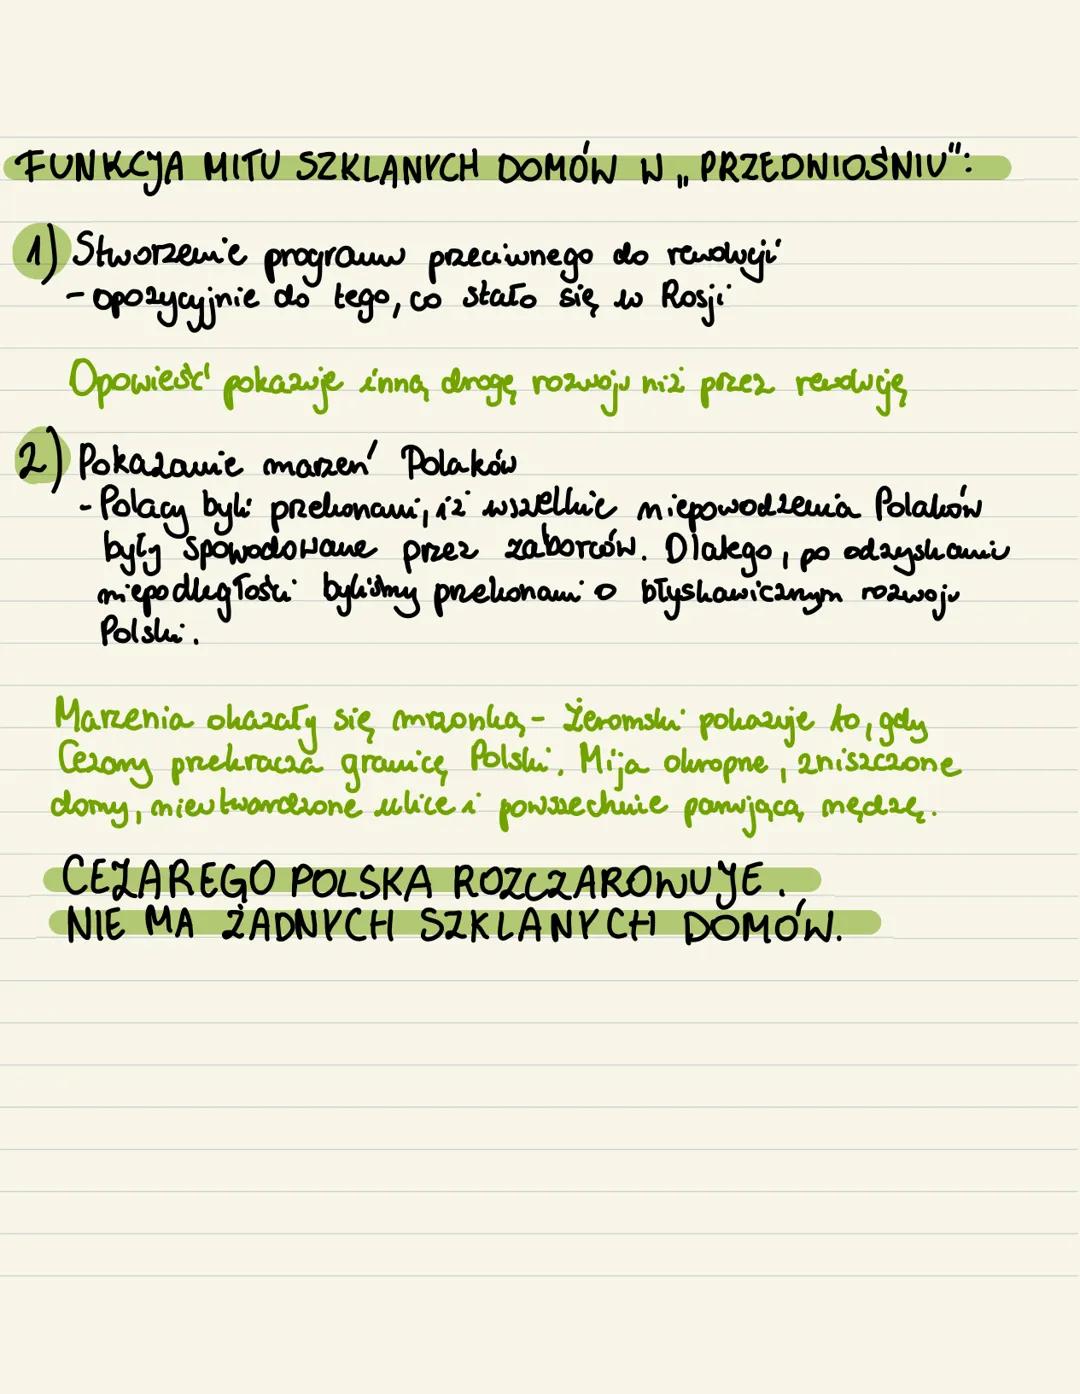 FUNKCJA MITU SZKLANYCH DOMÓW W „PRZEDNIOŚNIU":
1) Stworzenie programu przeciwnego do rewolucji
- opozycyjnie do tego, co stało się w Rosji
Opowieść pokazuje inną drogę rozwoju niż przez rewolucję
2) Pokazanie marzeń Polaków
- Polacy byli przekonani, iż wszelkie niepowodzenia Polaków
były spowodowane przez zaborców. Dlatego, po odzyskaniu
niepodległości byliśmy przekonani o błyskawicznym rozwoju
Polski.
Marzenia okazały się mrzonką - Żeromski pokazuje to, gdy
Cezary przekracza granicę Polski. Mija okropne, zniszczone
domy, nieutwardzone ulice i powszechnie panującą nędzę.
CEZAREGO POLSKA ROZCZAROWUJE.
NIE MA ŻADNYCH SZKLANYCH DOMÓW.